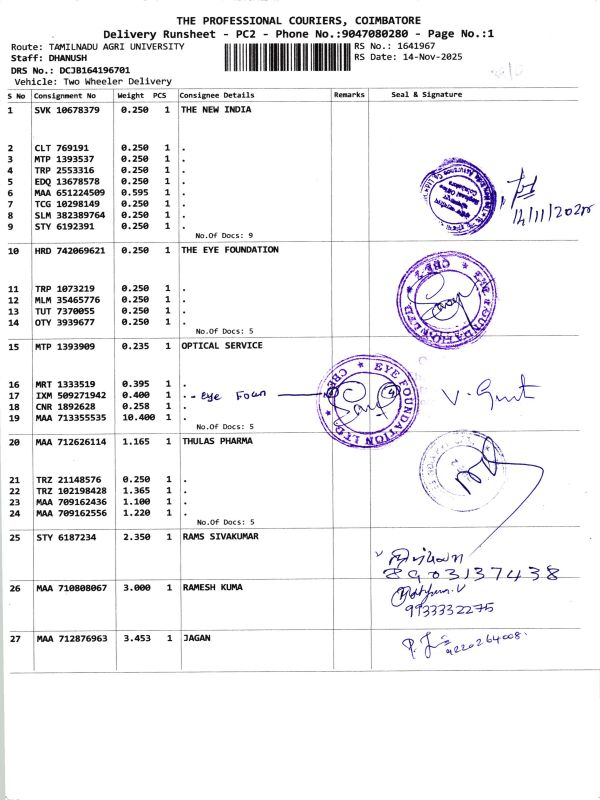 THE PROFESSIONAL COURIERS, COIMBATORE
Delivery Runsheet - PC2 - Phone No.:9047080280 - Page No.:1
Route: TAMILNADU AGRI UNIVERSITY RS No.: 1641967
Staff: DHANUSH RS Date: 14-Nov-2025
DRS No.: DCJB164196701
Vehicle: Two Wheeler Delivery
S No Consignment No Weight PCS Consignee Details Remarks Seal & Signature
1 SVK 10678379 0.250 1 THE NEW INDIA
2 CLT 769191 0.250 1 .
3 MTP 1393537 0.250 1 .
4 TRP 2553316 0.250 1 .
5 EDQ 13678578 0.250 1 .
6 MAA 651224509 0.595 1 .
7 TCG 10298149 0.250 1 .
8 SLM 382389764 0.250 1 .
9 STY 6192391 0.250 1 .
14/11/2025
No.Of Docs: 9
10 HRD 742069621 0.250 1 THE EYE FOUNDATION
11 TRP 1073219 0.250 1 .
12 MLM 35465776 0.250 1 .
13 TUT 7370055 0.250 1 .
14 OTY 3939677 0.250 1 .
THE EYE FOUNDATION LTD CBE-2
No.Of Docs: 5
15 MTP 1393909 0.235 1 OPTICAL SERVICE
16 MRT 1333519 0.395 1 .
17 IXM 509271942 0.400 1 . -- eye Foun
18 CNR 1892628 0.258 1 .
19 MAA 713355535 10.400 1 .
EYE FOUNDATION LTD CBE
No.Of Docs: 5
20 MAA 712626114 1.165 1 THULAS PHARMA
21 TRZ 21148576 0.250 1 .
22 TRZ 102198428 1.365 1 .
23 MAA 709162436 1.100 1 .
24 MAA 709162556 1.220 1 .
No.Of Docs: 5
25 STY 6187234 2.350 1 RAMS SIVAKUMAR
8903137438
26 MAA 710808067 3.000 1 RAMESH KUMA
9933332275
27 MAA 712876963 3.453 1 JAGAN
9220264008.